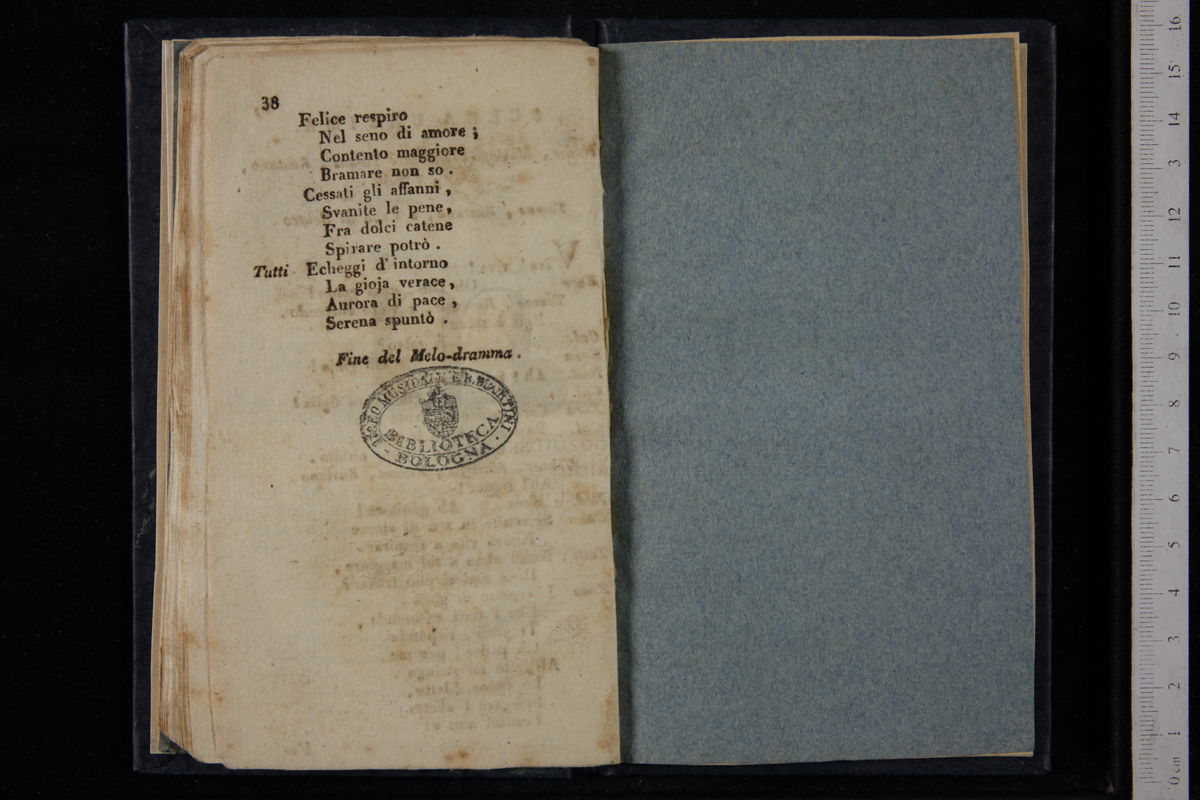 38
Felice respiro
Nel seno di amore ;
Contento maggiore
Bramare non so .
Cessati gli affanni ,
Svanite le pene,
Fra dolci catene
Spirare potrò .
Tutti Echeggi d' intorno
La gioja verace,
Aurora di pace ,
Serena spuntò .
Fine del Melo-dramma .
LICEO MUSICALE G.B. MARTINI
BIBLIOTECA
- BOLOGNA -
0 cm 1 2 3 4 5 6 7 8 9 10 11 12 3 14 15 16